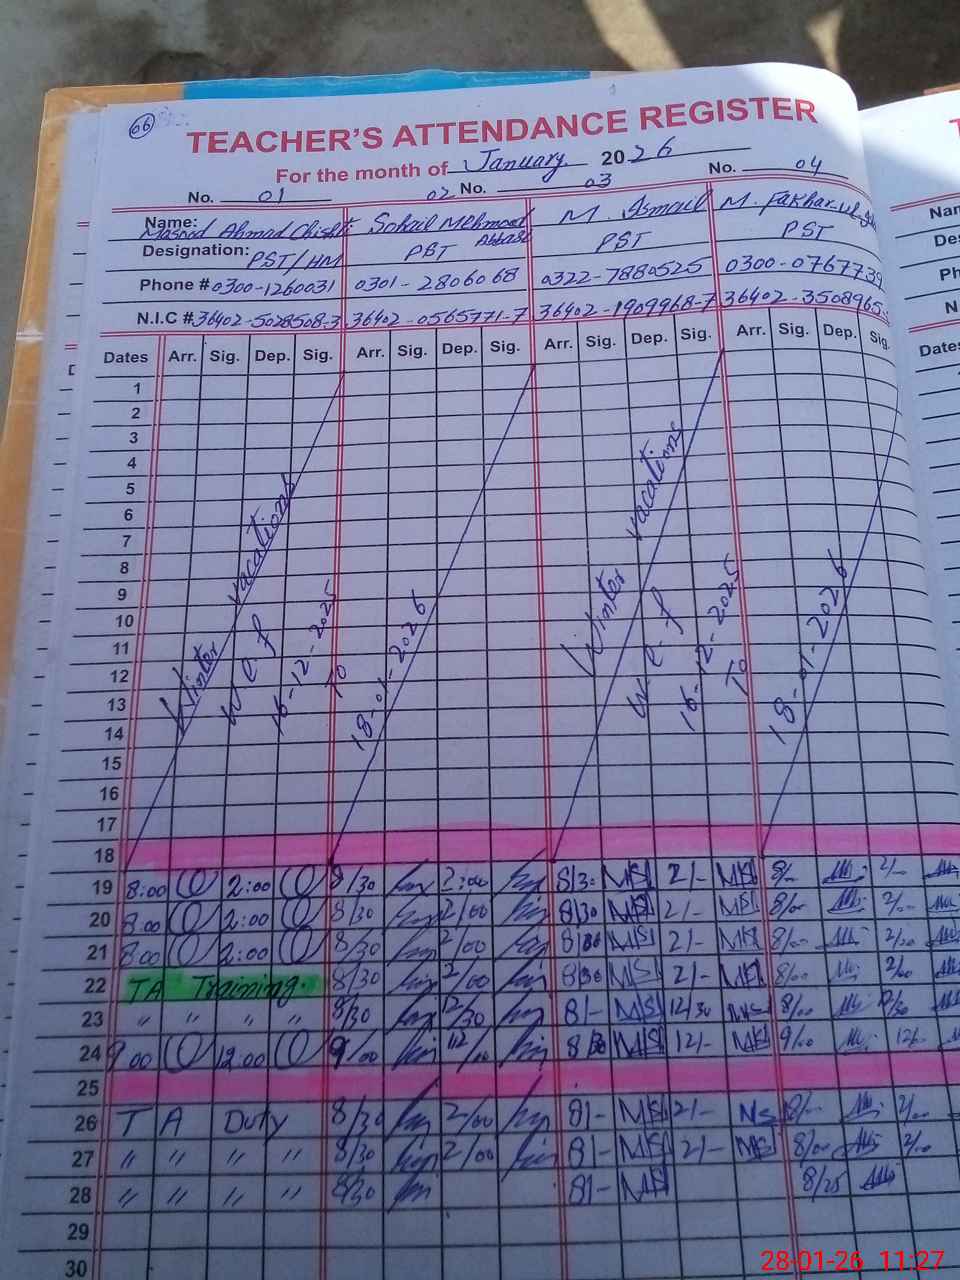 06
TEACHER'S ATTENDANCE REGISTER
For the month of January 2026
No. 01 02 No. 03 No. 04
Name: Masood Ahmad Chishti Sohail Mehmood Abbasi M. Ismail M. Fakhar-ul-
Designation: PST/HM PST PST PST
Phone # 0300-1260031 0301-2806068 0322-7880525 0300-0767739
N.I.C # 36402-5028508-3 36402-0565771-7 36402-1909968-7 36402-3508965-
Dates Arr. Sig. Dep. Sig. Arr. Sig. Dep. Sig. Arr. Sig. Dep. Sig. Arr. Sig. Dep. Sig.
1
2
3
4
5
6
7
8
9
10
11
12
13
14
15
16
17
18
Winter vacations
w.e.f
16-12-2025
To
18-01-2026
Winter vacations
w.e.f
16-12-2025
To
18-01-2026
19 8:00 2:00 8/30 2:00 8/30 MSI 2/- MSI 8/- 2/-
20 8:00 2:00 8/30 2/00 8/30 MSI 2/- MSI 8/00 2/-
21 8:00 2:00 8/30 2/00 8/30 MSI 2/- MSI 8/00 2/00
22 TA Training. 8/30 2/00 8/30 MSI 2/- MSI 8/00 2/00
23 " " " " 8/30 12/30 8/- MSI 12/30 MSI 8/00 12/30
24 9:00 12:00 9/00 12/00 8/30 MSI 12/- MSI 9/00 12/-
25
26 T A Duty 8/30 2/00 8/- MSI 2/- MSI 8/- 2/00
27 " " " " 8/30 2/00 8/- MSI 2/- MSI 8/00 2/00
28 " " " " 8/30 8/- MSI 8/25
29
30
28-01-26 11:27